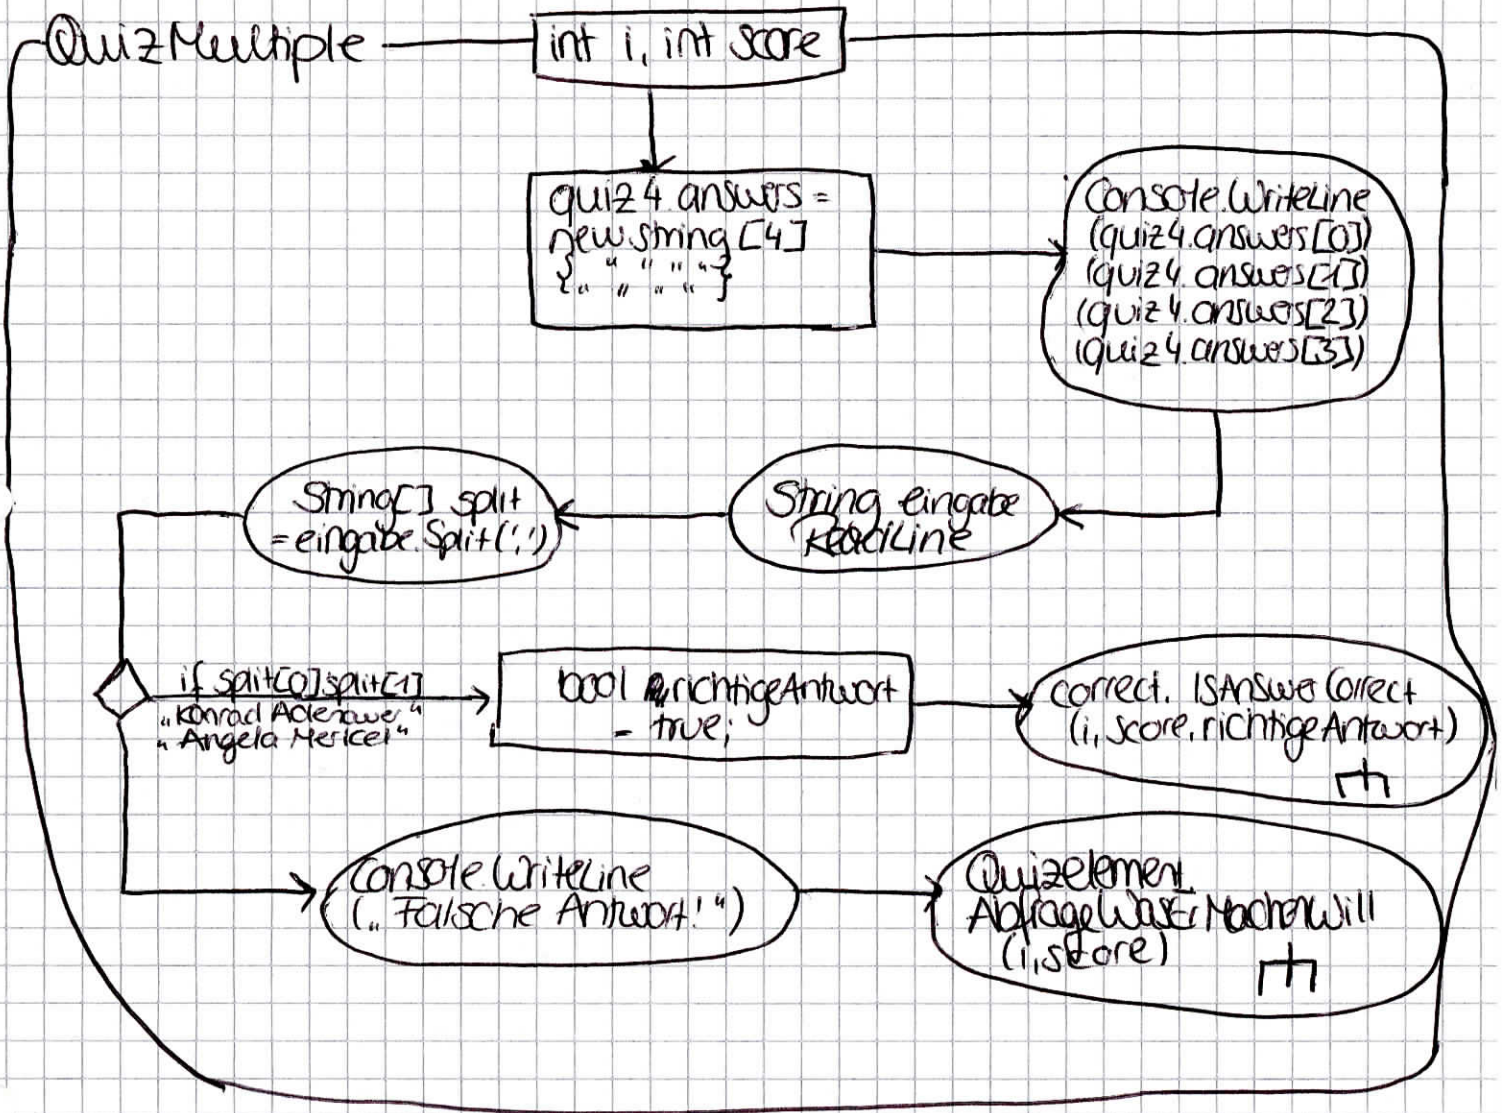 QuizMultiple
int i, int score
quiz4.answers =
new.string [4]
{" " " " "}
Console.WriteLine
(quiz4.answers[0])
(quiz4.answers[1])
(quiz4.answers[2])
(quiz4.answers[3])
String[] split
= eingabe.Split(',')
String eingabe
ReadLine
if split[0] split[1]
„Konrad Adenauer"
„Angela Merkel"
bool richtigeAntwort
= true;
correct. IsAnswerCorrect
(i, score, richtigeAntwort)
Console.WriteLine
(„Falsche Antwort!")
Quizelement.
AbfrageWasErMachenWill
(i, score)